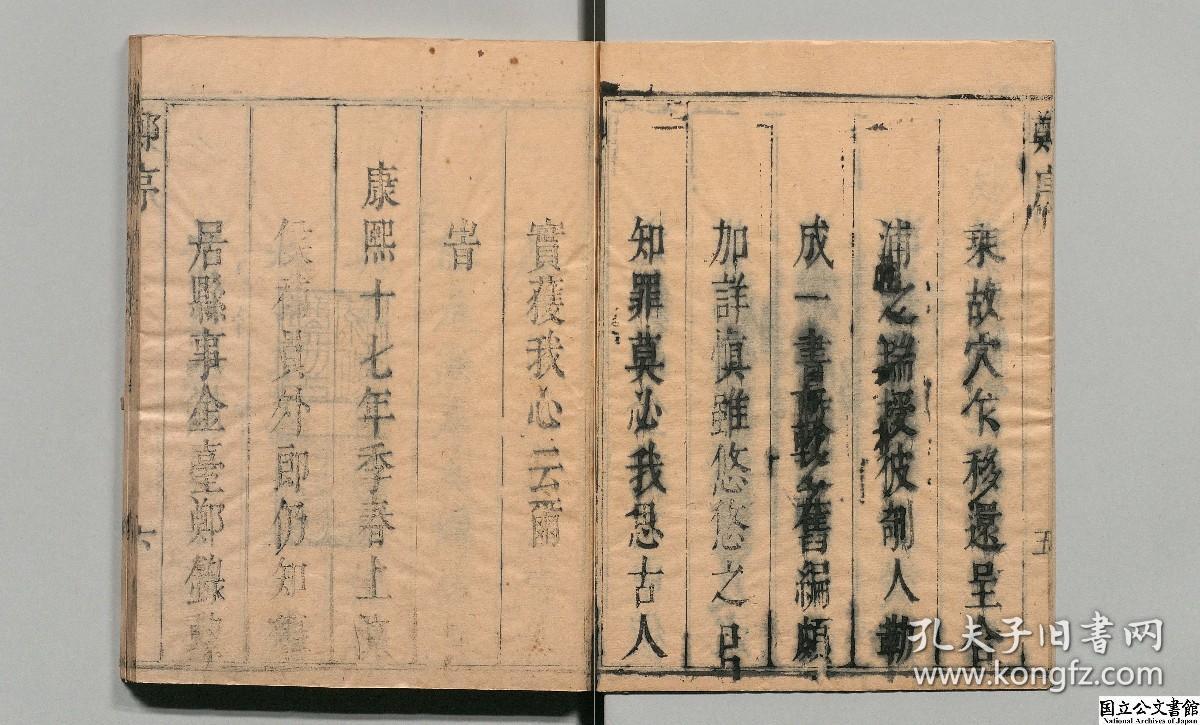 鄭序
五
乘故穴仄移還呈合
浦之瑞授彼剞人勒
成一書較之舊編頗
加詳慎雖悠悠之口
知罪莫必我思古人
實獲我心云爾
旹
康熙十七年季春上
候補員外郎仍知
居縣事金臺鄭錄
鄭序
六
孔夫子旧书网
www.kongfz.com
国立公文書館
National Archives of Japan